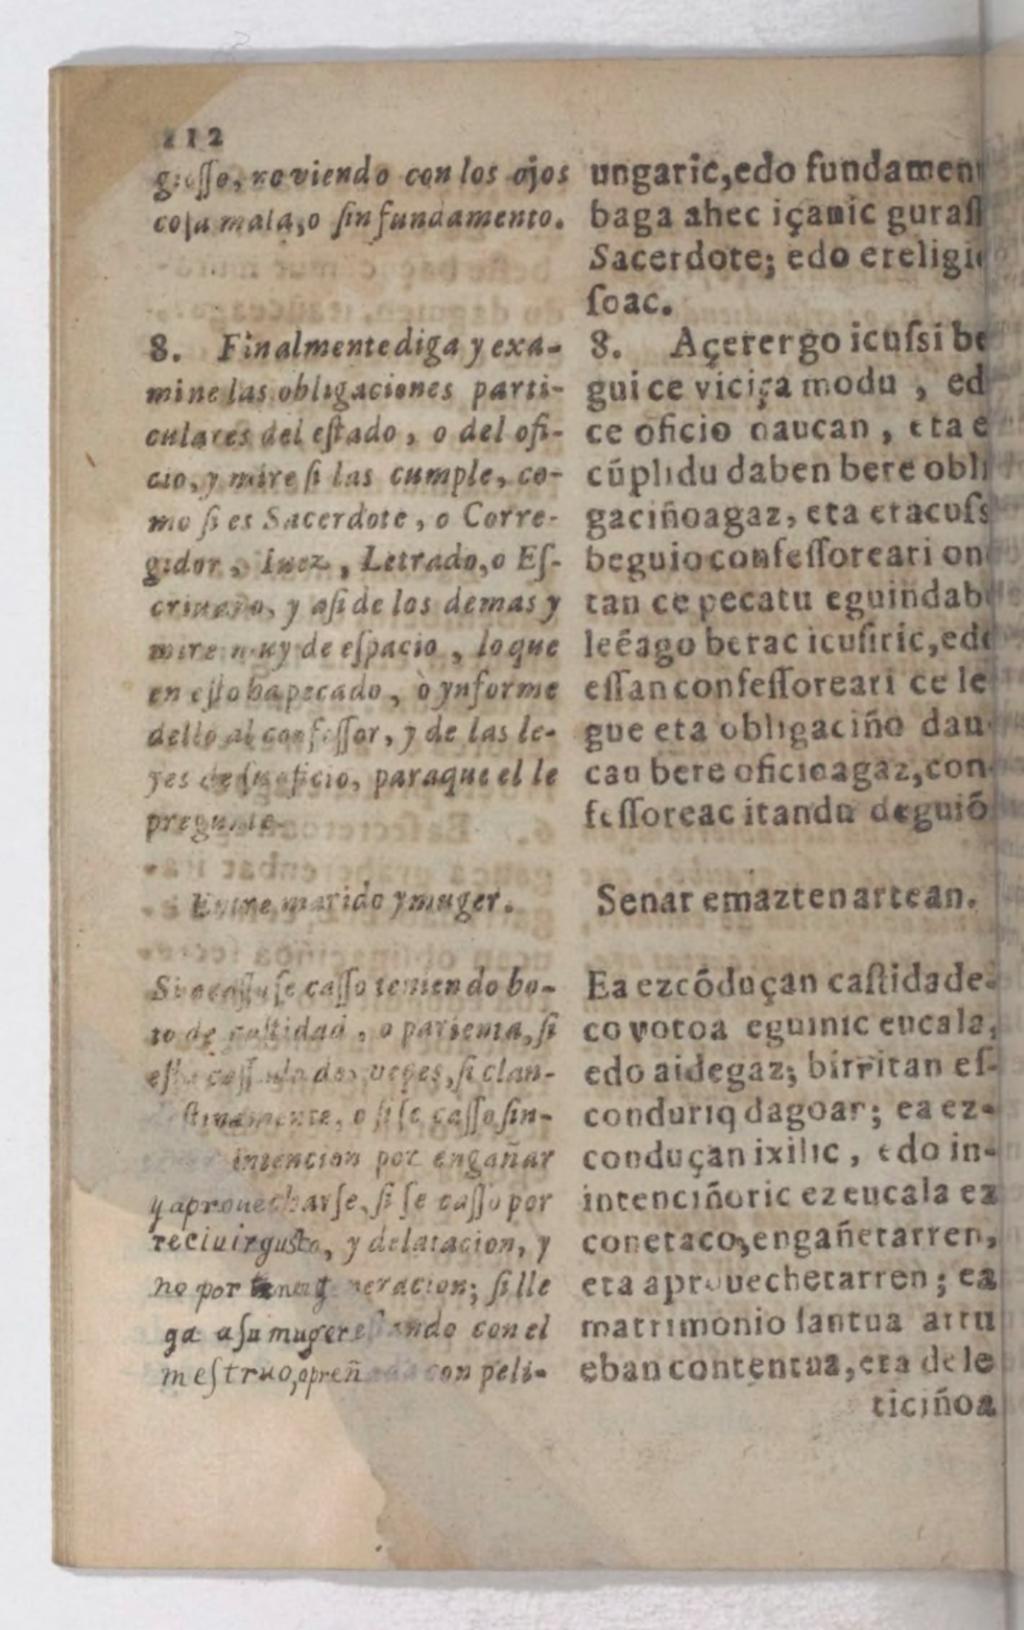 112
giosso, no viendo con los ojos
cosa mala, o sin fundamento.
8. Finalmente diga y exa-
mine las obligaciones parti-
culares del estado, o del ofi-
cio, y mire si las cumple, co-
mo si es Sacerdote, o Corre-
gidor, Iuez, Letrado, o Es-
criuano, y asi de los demas y
mire muy de espacio, lo que
en esto ha pecado, ò ynforme
dello al confessor, y de las le-
yes de su oficio, paraque el le
pregunte.
Entre marido y muger.
Si acasso se casso teniendo bo-
to de castidad, o parienta, si
esta cassado dos veçes, si clan-
destinamente, o si se casso sin-
intencion por engañar
y aprouecharse, si se casso por
reciuir gusto, y delatacion, y
no por generacion; si lle
ga a su muger estando con el
mestruo, o preñada con peli-
ungaric, edo fundament
baga ahec içanic gurass
Sacerdote; edo ereligio
soac.
8. Açerergo icussi be
gui ce viciça modu, ed
ce oficio daucan, eta e
cúplidu daben bere obli
gaciñoagaz, eta eracuss
beguio confessoreari on
tan ce pecatu eguindab
leéago berac icusiric, edo
essan confessoreari ce le
gue eta obligaciño dau
cau bere oficioagaz, con
fessoreac itandu deguió
Senar emazten artean.
Ea ezcóduçan castidade-
co votoa eguinic eucala,
edo aidegaz; birritan es-
conduriq dagoar; ea ez-
conduçan ixilic, edo in-
intenciñoric ez eucala ez
conetaco, engañetarren,
eta aprouechetarren; ea
matrimonio santua artu
eban contentua, eta dele
ticiñoa